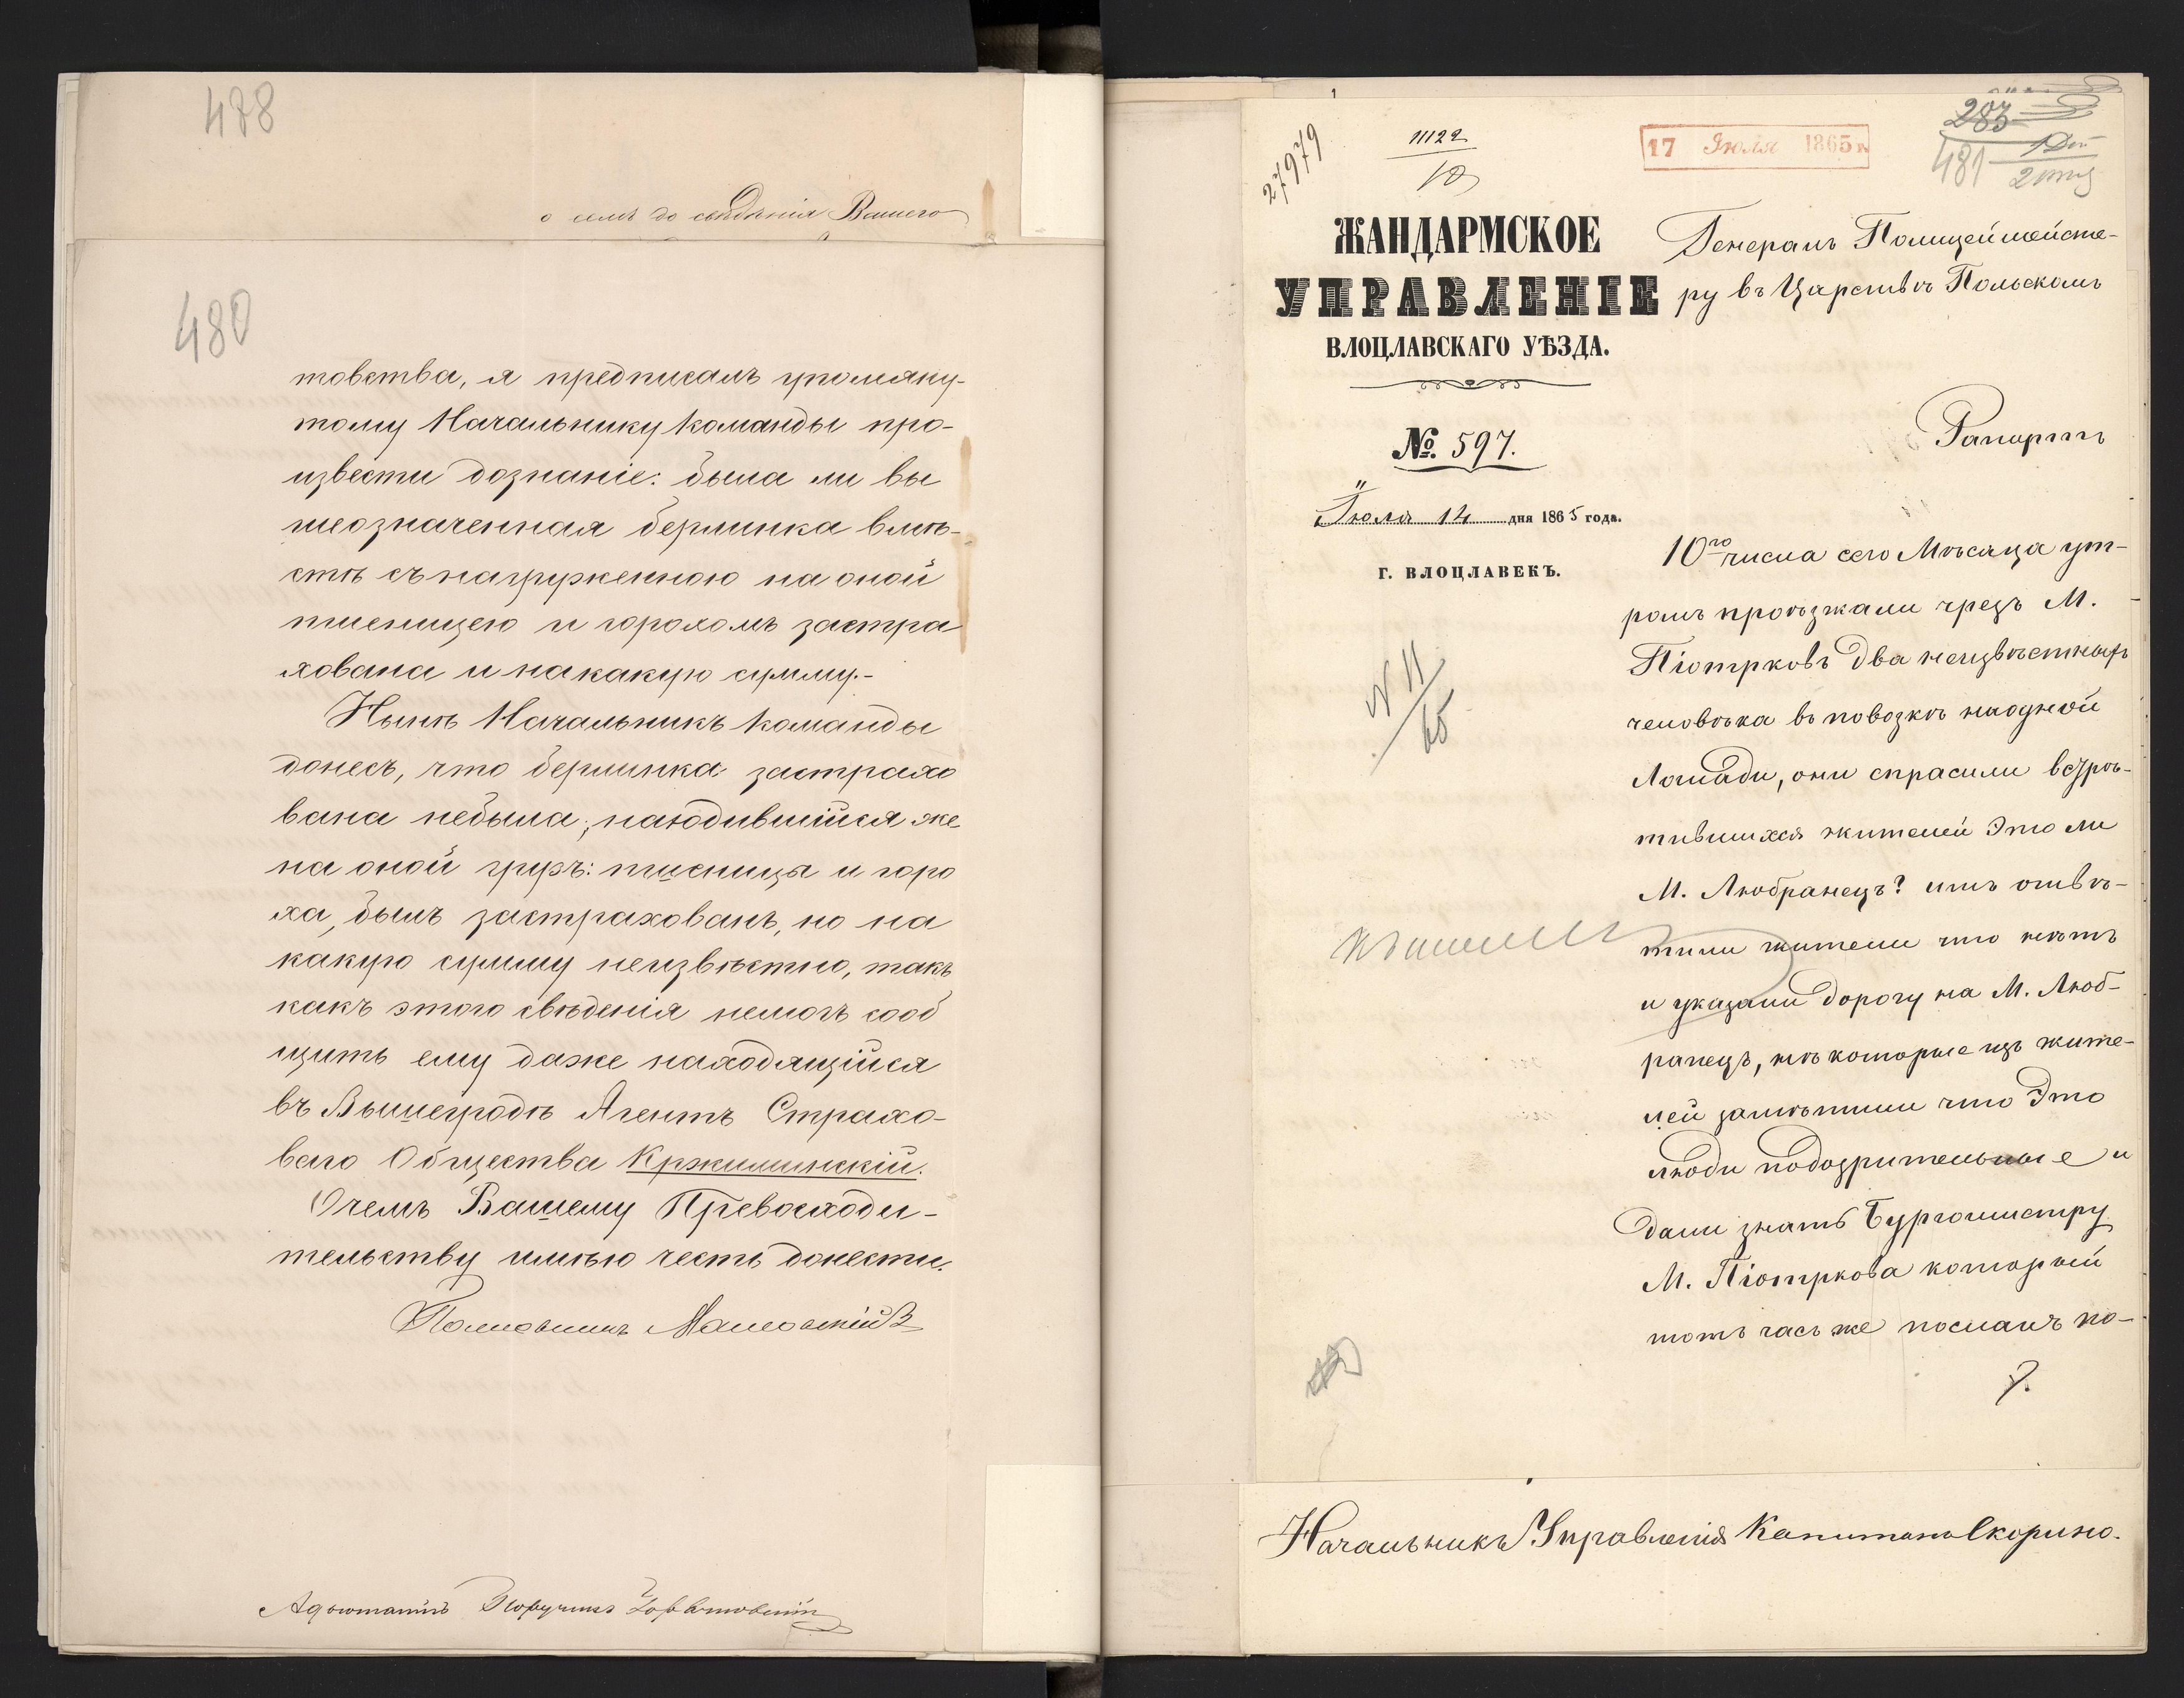 488
о семъ до свѣдѣнія Вашего
480
товства, я предписалъ упомяну-
тому Начальнику команды про-
извести дознаніе: была ли вы
шеозначенная берлинка вмѣ-
стѣ съ нагруженною на оной
пшеницею и горохомъ застра
хована и на какую сумму.-
Нынѣ Начальникъ команды
донесъ, что берлинка застрахо
вана небыла, находившійся же
на оной грузъ: пшеницы и горо
ха, былъ застрахованъ, но на
какую сумму неизвѣстно, такъ
какъ этого свѣденія немогъ сооб
щить ему даже находящійся
въ Вышегродѣ Агентъ Страхо-
ваго Общества Кржиминскій.
Очемъ Вашему Превосходи-
тельству имѣю честь донести.
Полковникъ
Адъютантъ Поручикъ
27979
11122
10
17 Іюля 1865 г.
283
481
ЖАНДАРМСКОЕ
УПРАВЛЕНІЕ
ВЛОЦЛАВСКАГО УѢЗДА.
№ 597.
Іюля 14 дня 1865 года.
Г. ВЛОЦЛАВЕКЪ.
N 11
65
Генералъ Полицеймейсте-
ру въ Царствѣ Польскомъ
Рапортъ
10го числа сего Мѣсяца ут-
ромъ проѣзжали чрезъ М.
Піотрковъ два неизвѣстныхъ
человѣка въ повозкѣ наодной
Лошади, они спрасили встрѣ-
тившихся жителей Это ли
М. Любранецъ? имъ отвѣ-
тили жители что нѣтъ
и указали дорогу на М. Люб-
ранецъ, нѣкоторые изъ жите-
лей замѣтили что Это
люди подозрительные и
дали знать Бургомистру
М. Піотркова который
тотъ часъ же послалъ по-
Начальникъ Управленія Капитанъ Скорино.